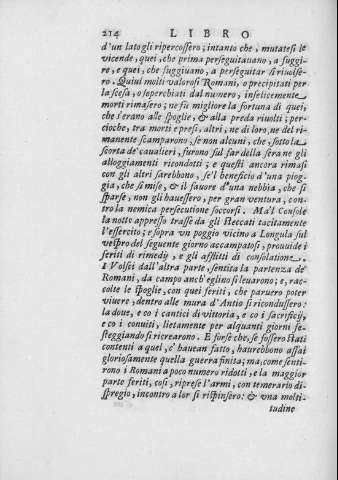 214 LIBRO
d'un lato gli ripercossero; intanto che, mutatesi le
vicende, quei, che prima perseguitauano, a fuggi-
re, e quei, che fuggiuano, a perseguitar si riuolse-
ro. Quiui molti valorosi Romani, o precipitati per
la scesa, o souerchiati dal numero, infelicemente
morti rimasero; ne fù migliore la fortuna di quei,
che s'erano alle spoglie, & alla preda riuolti; per-
cioche, tra morti e presi, altri, ne di loro, ne del ri-
manente scamparono, se non alcuni, che, sotto la
scorta de' caualieri, furono sul far della sera ne gli
alloggiamenti ricondotti; e questi ancora rimasi
con gli altri sarebbono, se'l beneficio d'una piog-
gia, che si mise, & il fauore d'una nebbia, che si
sparse, non gli hauessero, per gran ventura, con-
tro la nemica persecutione soccorsi. Ma'l Console
la notte appresso trasse da gli steccati tacitamente
l'essercito; e sopra un poggio vicino a Longula sul
vespro del seguente giorno accampatosi, prouuide i
feriti di rimedij, e gli afflitti di consolatione.
i Volsci dall'altra parte, sentita la partenza de'
Romani, da campo anch'eglino si leuarono; e, rac-
colte le spoglie, con quei feriti, che paruero poter
viuere, dentro alle mura d'Antio si ricondussero:
la doue, e co i cantici di vittoria, e co i sacrificij,
e co i conuiti, lietamente per alquanti giorni fe-
steggiando si ricrearono. E forse che, se fossero stati
contenti a quel, c'hauean fatto, haurebbono assai
gloriosamente quella guerra finita; ma, come senti-
rono i Romani a poco numero ridotti, e la maggior
parte feriti, così, riprese l'armi, con temerario di-
spregio, incontro a lor si rispinsero: & una molti-
tudine